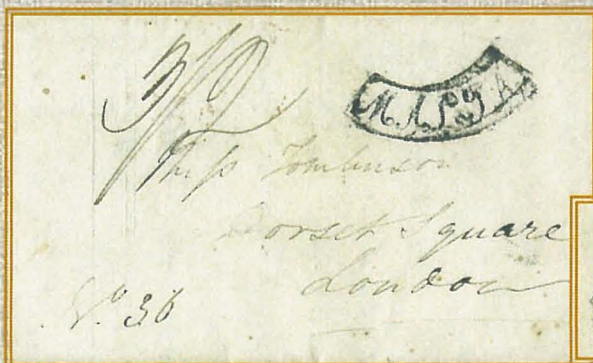 3/2
MALTA
Miss Tomlinson
Dorset Square
London
No 36